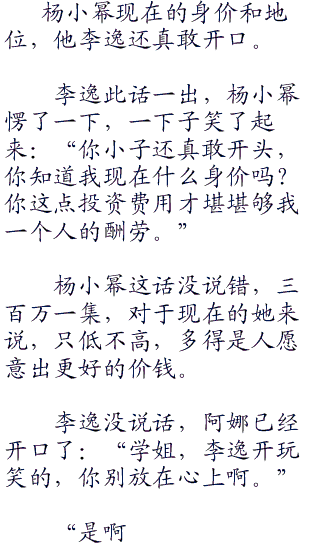 杨小幂现在的身价和地
位，他李逸还真敢开口。
李逸此话一出，杨小幂
愣了一下，一下子笑了起
来：“你小子还真敢开头，
你知道我现在什么身价吗？
你这点投资费用才堪堪够我
一个人的酬劳。”
杨小幂这话没说错，三
百万一集，对于现在的她来
说，只低不高，多得是人愿
意出更好的价钱。
李逸没说话，阿娜已经
开口了：“学姐，李逸开玩
笑的，你别放在心上啊。”
“是啊